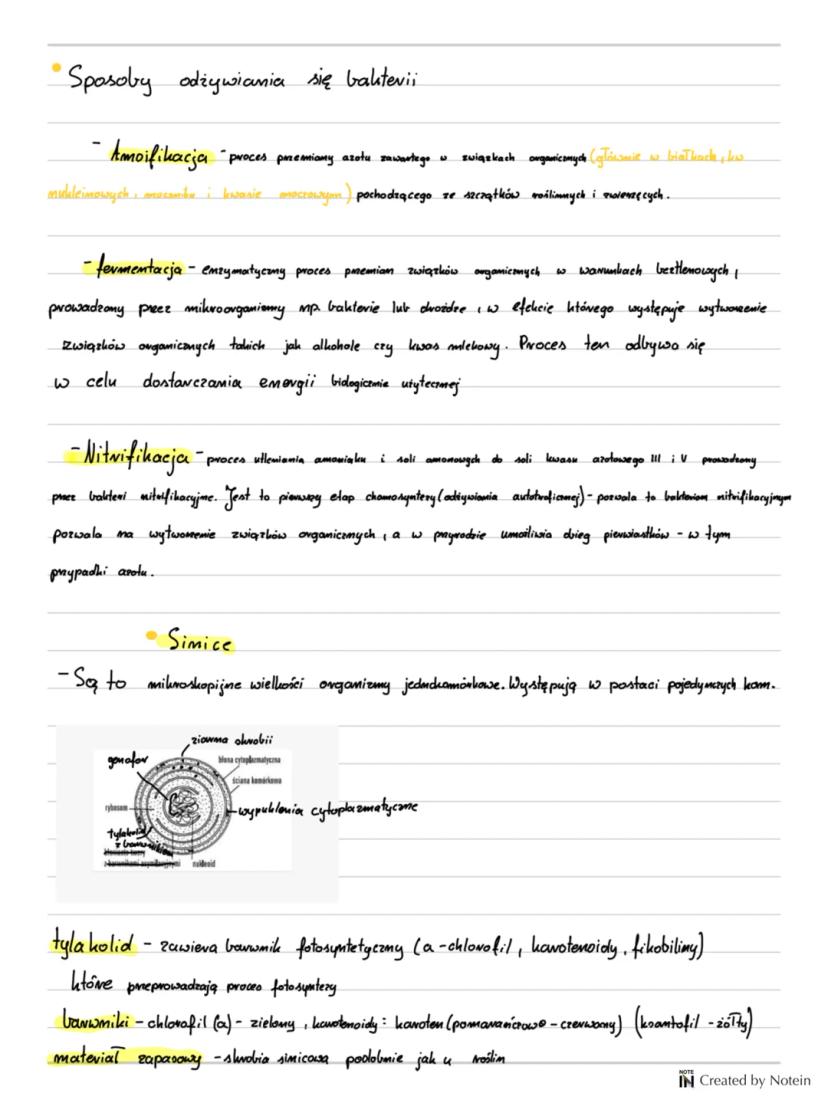 Sposoby odżywiania się bakterii
- Amoifikacja - proces przemiany azotu zawartego w związkach organicznych (głównie w białkach, kw
nukleinowych, moczniku i kwasie moczowym) pochodzącego ze szczątków roślinnych i zwierzęcych.
- fermentacja - enzymatyczny proces przemian związków organicznych w warunkach beztlenowych,
prowadzony przez mikroorganizmy np. bakterie lub drożdże, w efekcie którego występuje wytworzenie
związków organicznych takich jak alkohole czy kwas mlekowy. Proces ten odbywa się
w celu dostarczania energii biologicznie użytecznej
- Nitryfikacja - proces utleniania amoniaku i soli amonowych do soli kwasu azotowego III i V prowadzony
przez bakterii nitryfikacyjne. Jest to pierwszy etap chemosyntezy (odżywiania autotroficznej) - pozwala to bakteriom nitryfikacyjnym
pozwala na wytworzenie związków organicznych, a w przyrodzie umożliwia obieg pierwiastków - w tym
przypadki azotu.
Sinice
- Są to mikroskopijne wielkości organizmy jednokomórkowe. Występują w postaci pojedynczych kom.
ziarna skrobii
genofor
błona cytoplazmatyczna
ściana komórkowa
rybosom
wypuklenia cytoplazmatyczne
tylakoid
z barwnikiem
z barwnikami asymilacyjnymi
nukleoid
tylakolid - zawiera barwnik fotosyntetyczny (a-chlorofil, karotenoidy, fikobiliny)
które przeprowadzają proces fotosyntezy
barwniki - chlorofil (a) - zielony, karotenoidy: karoten (pomarańczowo - czerwony) (ksantofil - żółty)
materiał zapasowy - skrobia sinicowa podobnie jak u roślin
NOTE IN Created by Notein